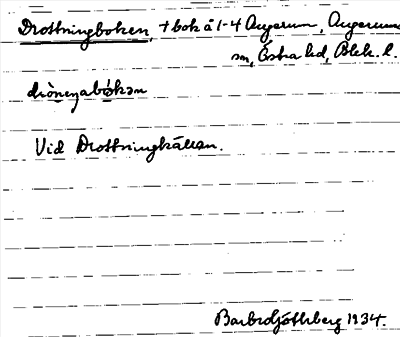 Drottningboken, + bok å 1-4 Augerum, Augerums
sn, Östra hd, Blek. l.
drònenabökən
Vid Drottningkällan.
Barbro Ljöthberg 1934.